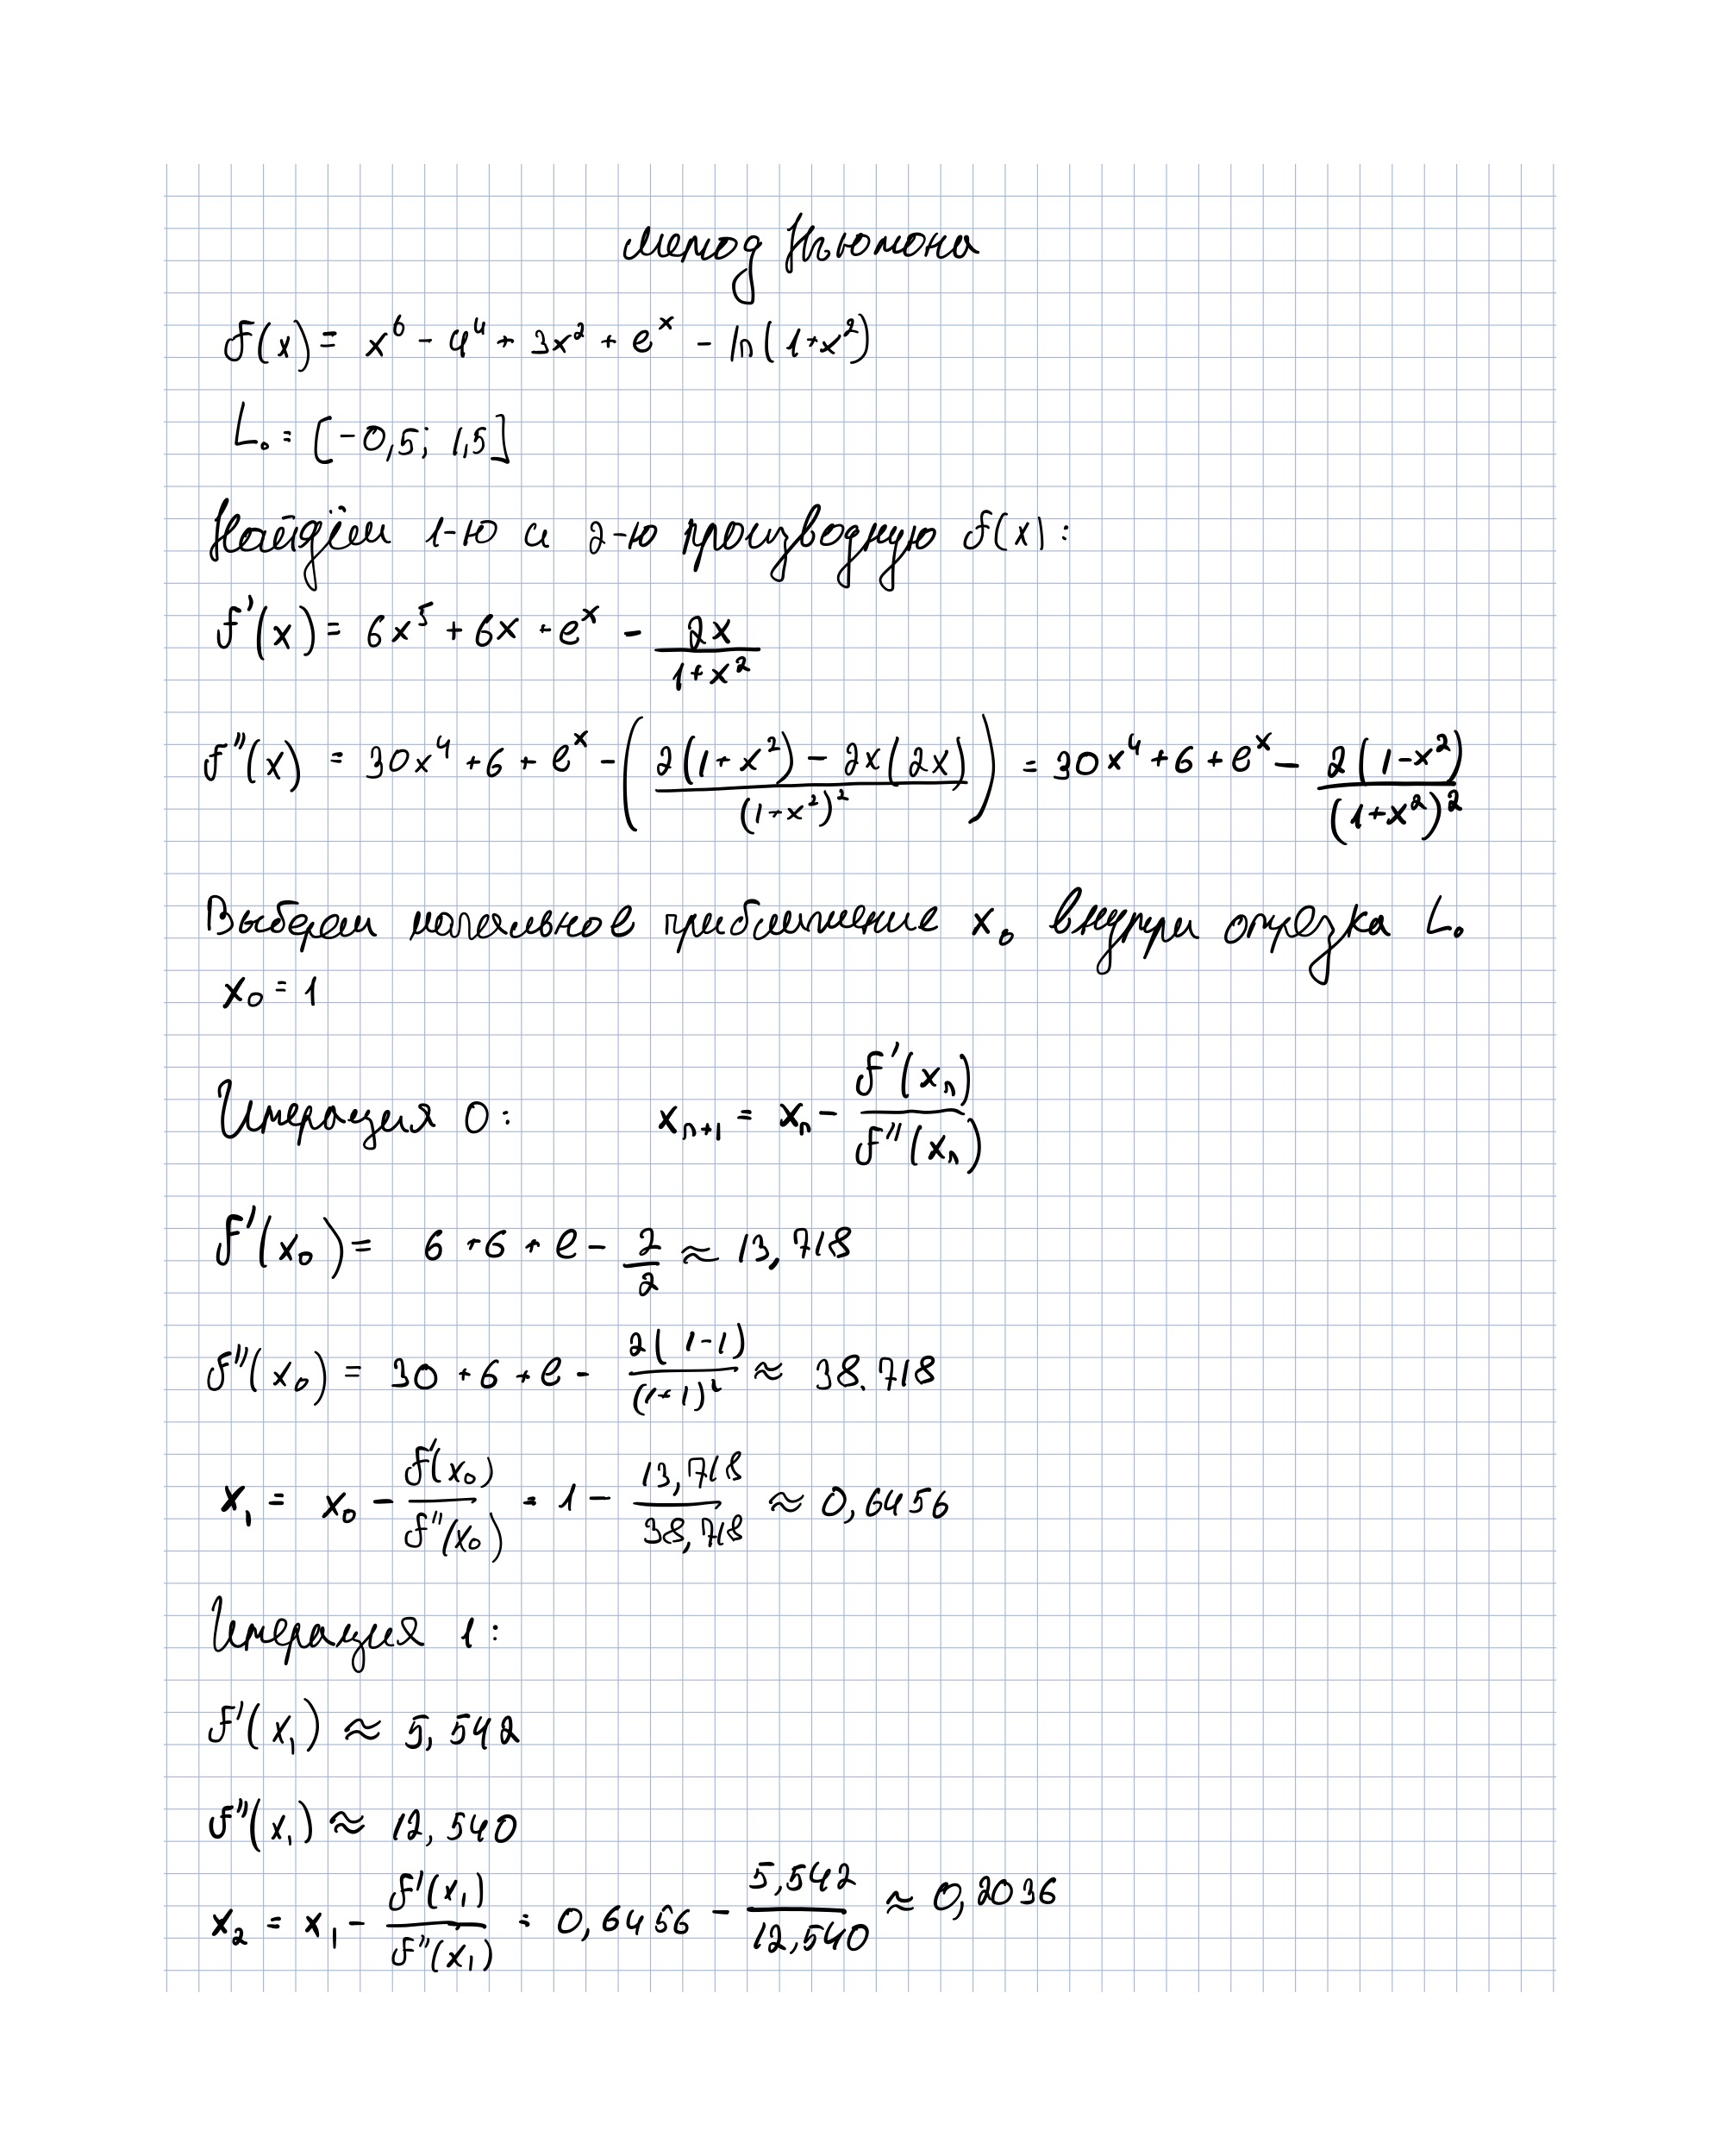 метод Ньютона
f(x) = x⁶ - 4⁴ + 3x² + eˣ - ln(1+x²)
L₀ = [-0,5; 1,5]
Найдём 1-ю и 2-ю производную f(x):
f'(x) = 6x⁵ + 6x + eˣ - 2x/(1+x²)
f''(x) = 30x⁴ + 6 + eˣ - ((2(1+x²) - 2x(2x))/(1+x²)²) = 30x⁴ + 6 + eˣ - 2(1-x²)/(1+x²)²
Выберем начальное приближение x₀ внутри отрезка L₀
x₀ = 1
Итерация 0: xₙ₊₁ = xₙ - f'(xₙ)/f''(xₙ)
f'(x₀) = 6 + 6 + e - 2/2 ≈ 13,718
f''(x₀) = 30 + 6 + e - 2(1-1)/(1+1)² ≈ 38.718
x₁ = x₀ - f'(x₀)/f''(x₀) = 1 - 13,718/38,718 ≈ 0,6456
Итерация 1:
f'(x₁) ≈ 5,542
f''(x₁) ≈ 12,540
x₂ = x₁ - f'(x₁)/f''(x₁) = 0,6456 - 5,542/12,540 ≈ 0,2036